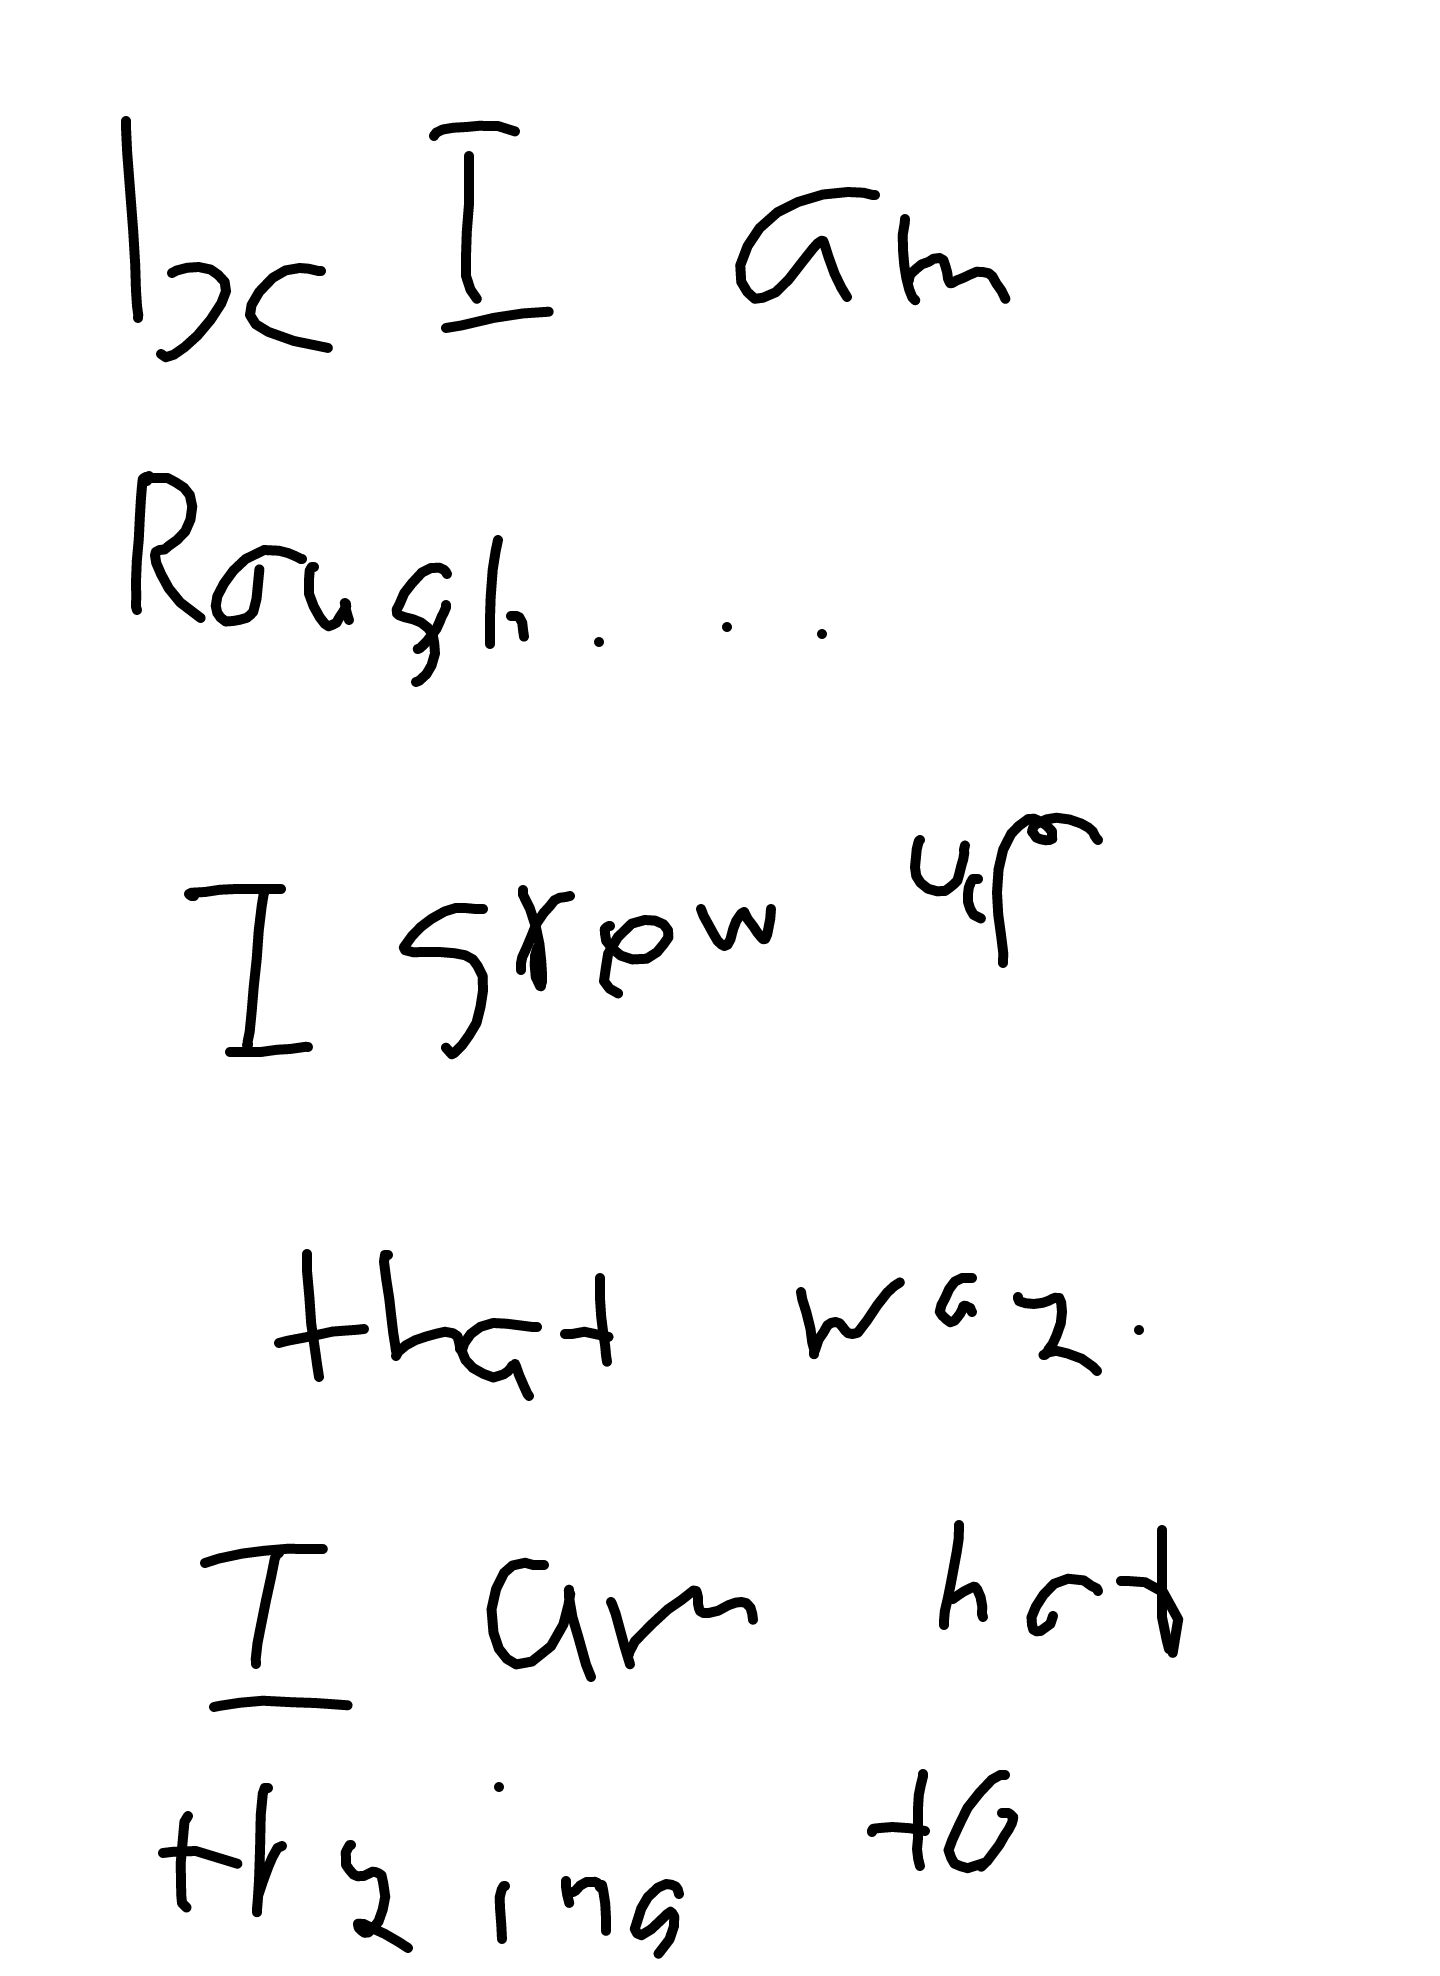 bc I am
Rough...
I grew up
that way.
I am not
trying to